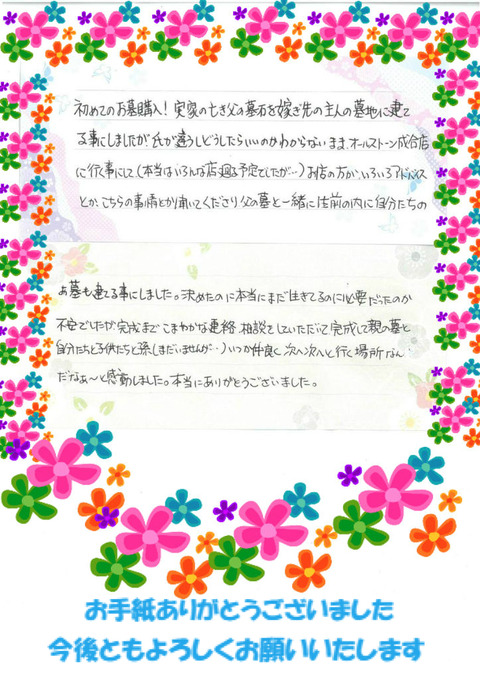 初めてのお墓購入!実家の亡き父の墓石を嫁ぎ先の主人の墓地に建て
る事にしましたが氏が違うしどうしたらいいのかわからないまま、オールストーン成合店
に行く事にして(本当はいろんな店廻る予定でしたが…)お店の方が、いろいろアドバイス
とか、こちらの事情とか聞いてくださり父の墓と一緒に生前の内に自分たちの
お墓も建てる事にしました。決めたのに本当にまだ生きてるのに必要だったのか
不安でしたが完成までこまやかな連絡、相談をしていただいて完成して親の墓と
自分たちと子供たちと孫(まだいませんが…)いつか仲良く次へ次へと行く場所なん
だなぁ〜と感動しました。本当にありがとうございました。
お手紙ありがとうございました
今後ともよろしくお願いいたします